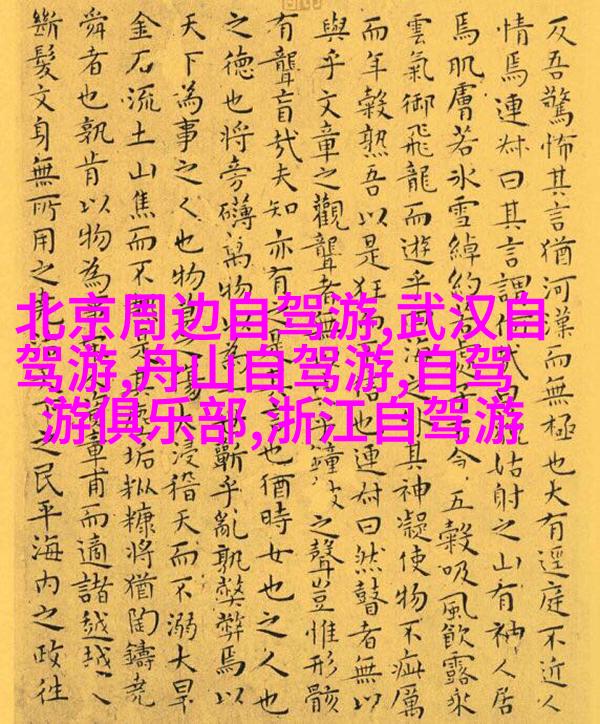 反吾驚怖其言猶河漢而無極也大有逕庭不近人
情焉連叔曰其言謂何哉姑射之山有神人居
焉肌膚若冰雪綽約若處子今五穀吸風飲露乘
雲氣御飛龍而遊乎海之其神凝使物不疵厲
而年穀熟吾以是狂信也連叔曰然瞽者無以
與乎文章之觀聾者無乎鐘之聲豈惟形骸
有聾盲哉夫知亦有之是其言也猶時女也之人也
之德也將旁礴萬物以為蘄乎亂孰弊弊焉以
天下為事之人也物莫之傷大浸稽天而不溺大旱
金石流土山焦而不是其垢粃糠將猶陶鑄堯
舜者也孰肯以物為事資章甫而適諸越越人
斷髮文身無所用之堯之民平海內之政往
北京周边自驾游,武汉自
驾游,舟山自驾游,自驾
游俱乐部,浙江自驾游